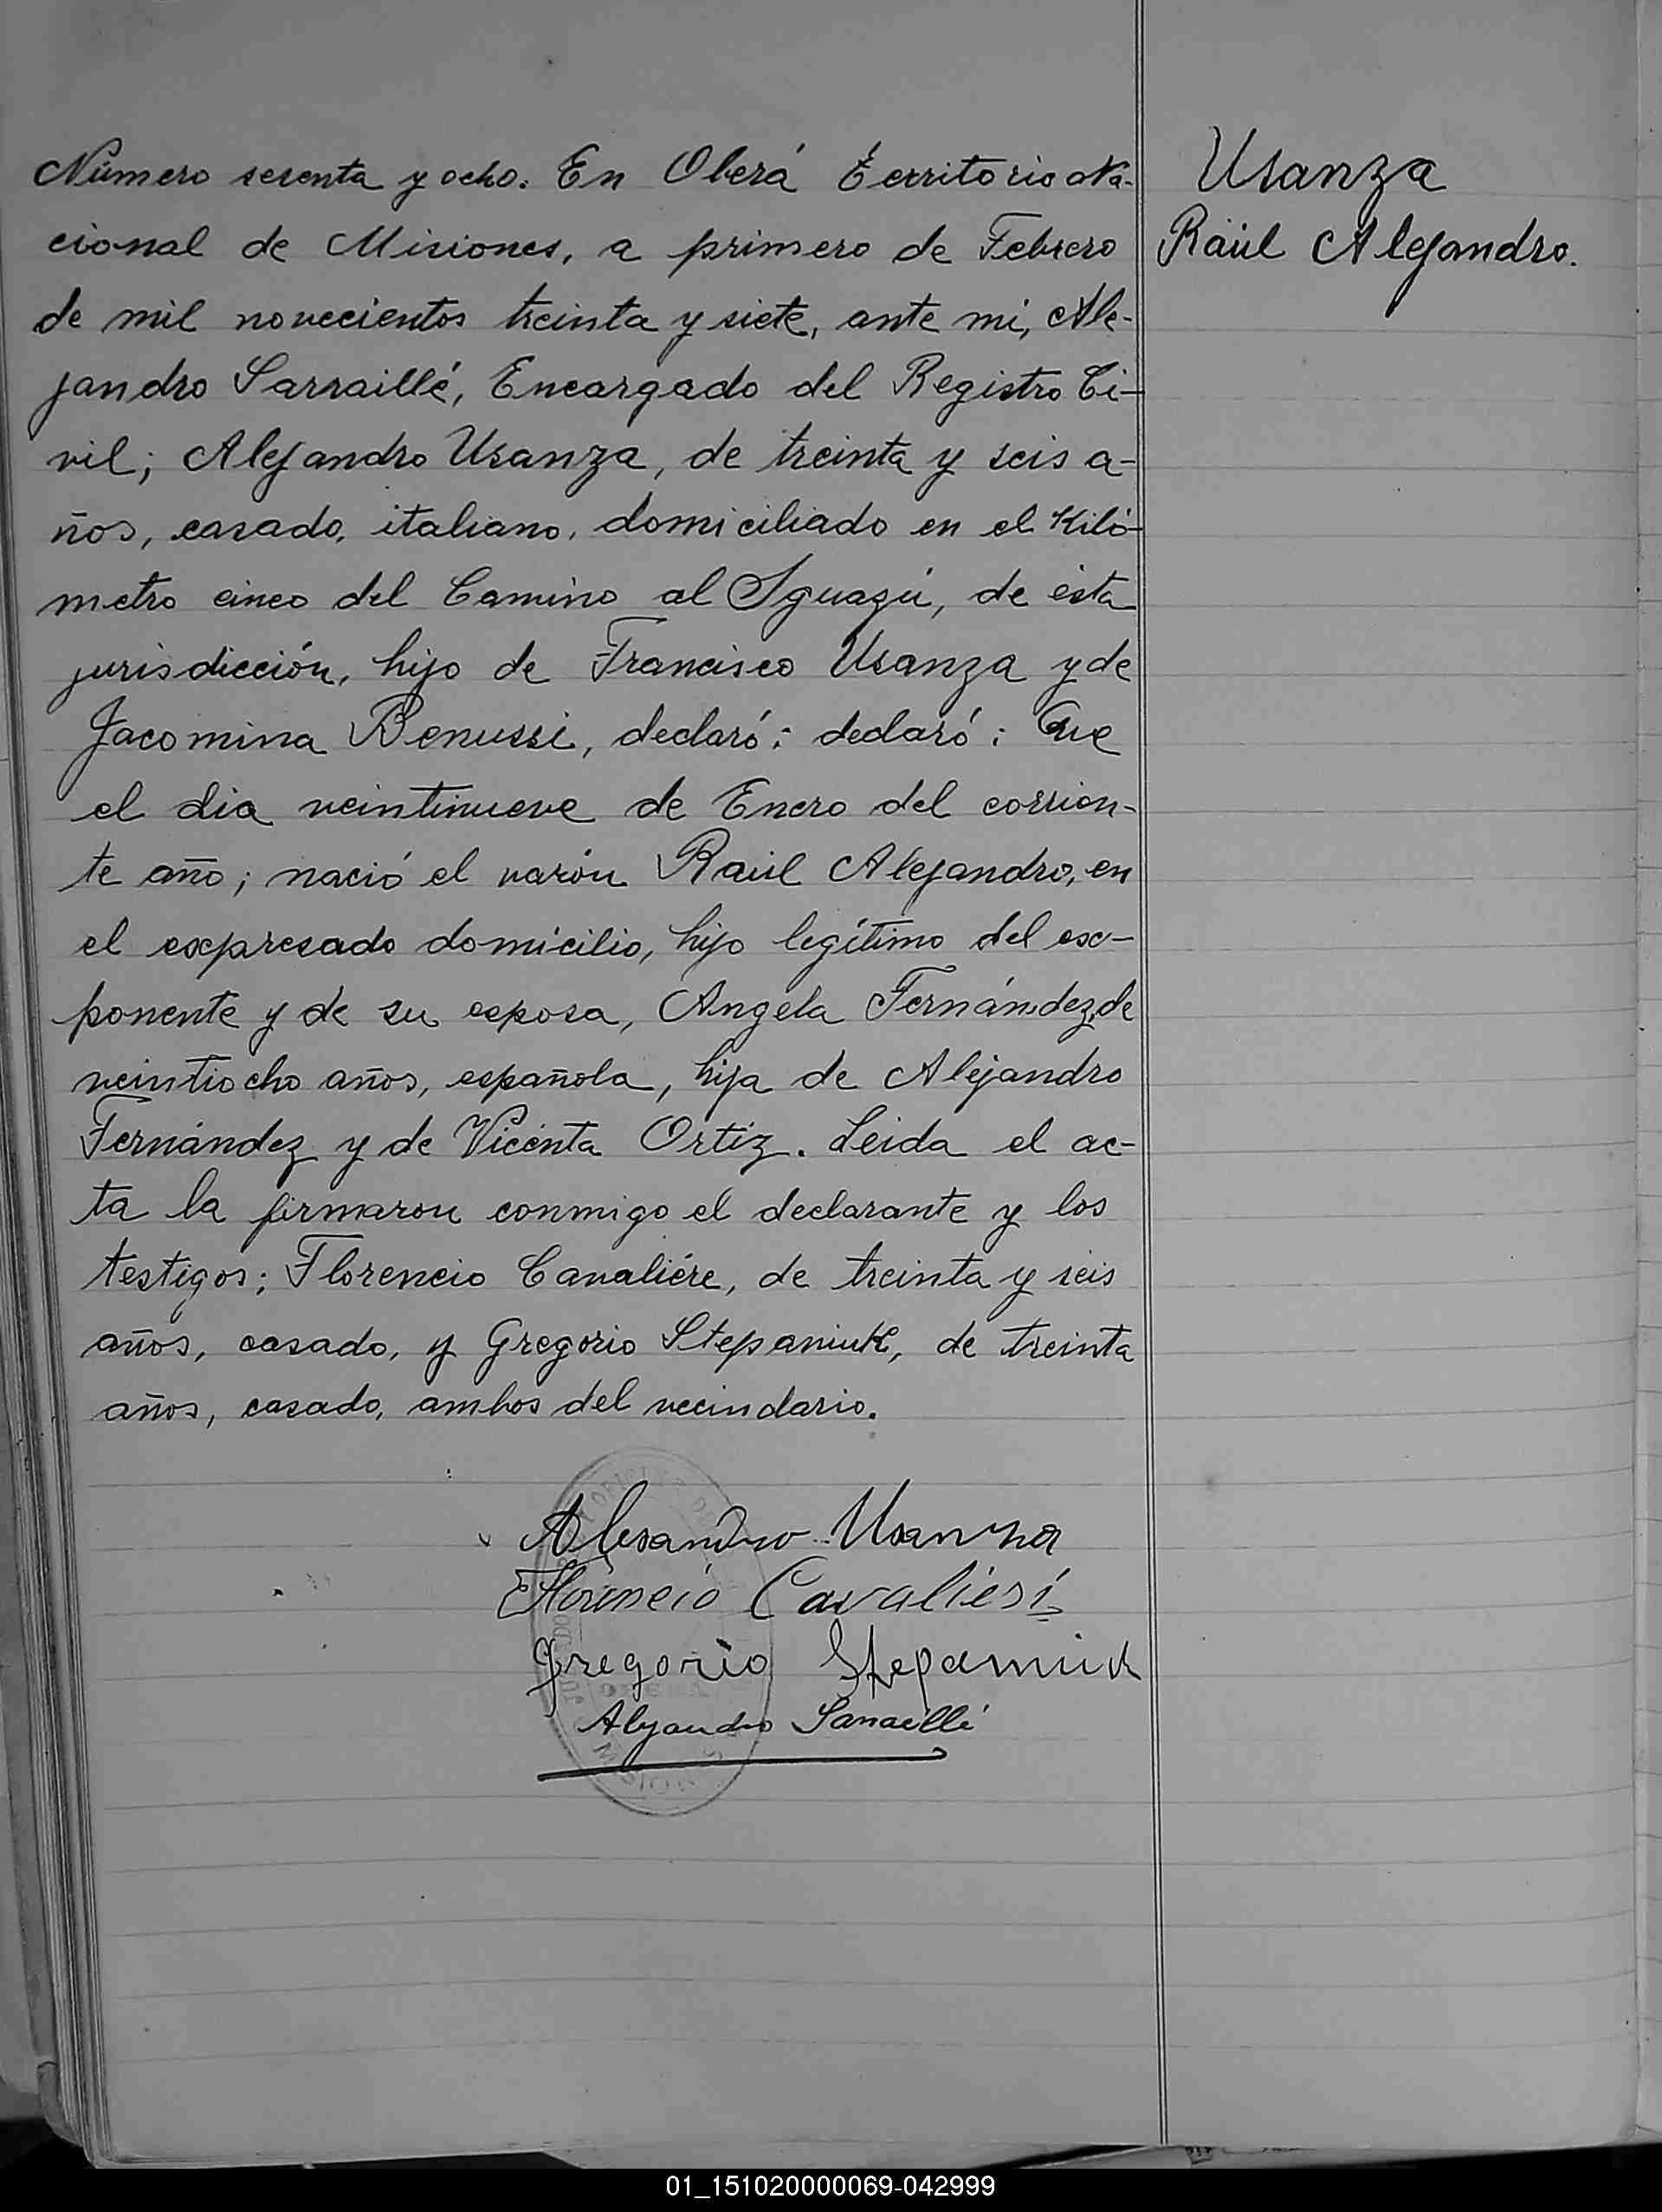 Número sesenta y ocho. En Oberá Territorio Na-
cional de Misiones, a primero de Febrero
de mil novecientos treinta y siete, ante mi, Ale-
jandro Sarraillé, Encargado del Registro Ci-
vil; Alejandro Usanza, de treinta y seis a-
ños, casado, italiano, domiciliado en el Kiló-
metro cinco del Camino al Iguazú, de ésta
jurisdicción, hijo de Francisco Usanza y de
Jacomina Benussi, declaró: declaró: Que
el dia veintinueve de Enero del corrien-
te año; nació el varón Raúl Alejandro, en
el expresado domicilio, hijo legítimo del ex-
ponente y de su esposa, Angela Fernández, de
veintiocho años, española, hija de Alejandro
Fernández y de Vicenta Ortíz. Leida el ac-
ta la firmaron conmigo el declarante y los
testigos; Florencio Cavaliére, de treinta y seis
años, casado, y Gregorio Stepaniuk, de treinta
años, casado, ambos del vecindario.
Usanza
Raúl Alejandro.
Alesandro Usanza
Florencio Cavalieri
Gregorio Stepaniuk
Alejandro Sarraillé
01_151020000069-042999